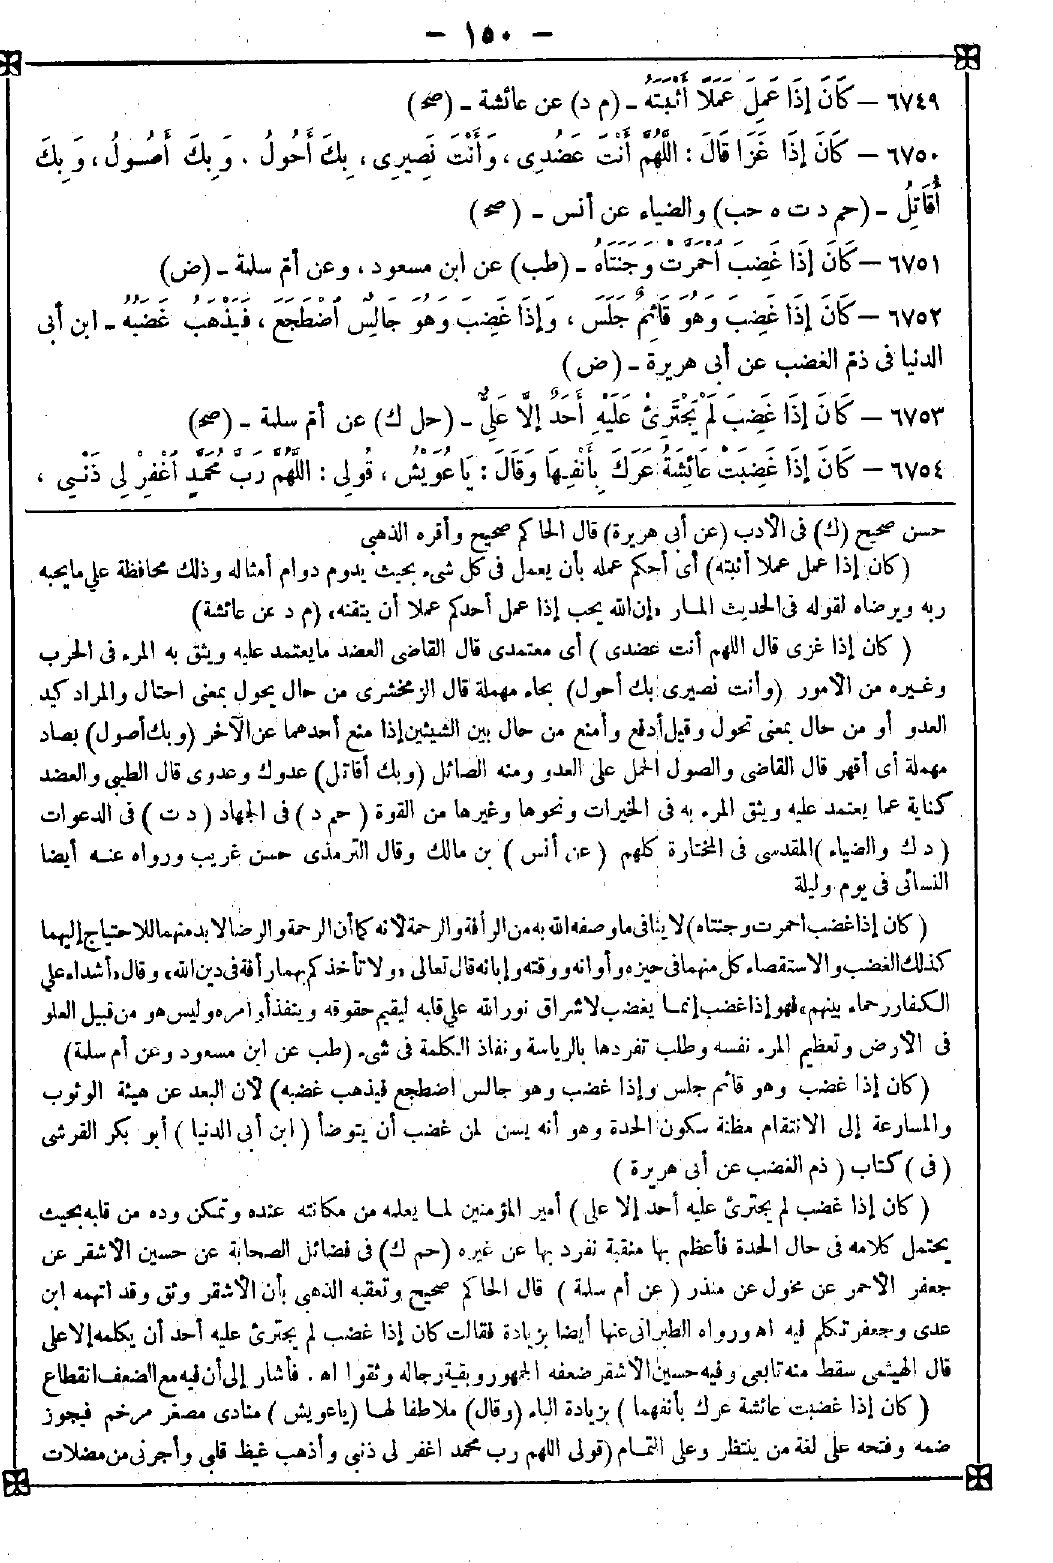 - ١٥٠ -
٦٧٤٩ - كَانَ إِذَا عَمِلَ عَمَلًا أَثْبَتَهُ - (م د) عن عائشة - (صح)
٦٧٥٠ - كَانَ إِذَا غَزَا قَالَ : اللَّهُمَّ أَنْتَ عَضُدِى ، وَأَنْتَ نَصِيرِى ، بِكَ أَحُولُ . وَبِكَ أَصُولُ ، وَبِكَ
أُقَاتِلُ - (حم د ت ه حب) والضياء عن أنس - (صح)
٦٧٥١ - كَانَ إِذَا غَضِبَ ٱحْمَرَّتْ وَجْنَتَاهُ - (طب) عن ابن مسعود ، وعن أمّ سلمة - (ض)
٦٧٥٢ - كَانَ إِذَا غَضِبَ وَهُوَ قَائِمٌ جَلَسَ ، وَإِذَا غَضِبَ وَهُوَ جَالِسٌ ٱضْطَجَعَ ، فَيَذْهَبُ غَضَبُهُ - ابن أبى
الدنيا فى ذمّ الغضب عن أبى هريرة - (ض)
٦٧٥٣ - كَانَ إِذَا غَضِبَ لَمْ يَجْتَرِئْ عَلَيْهِ أَحَدٌ إِلَّا عَلِيٌّ - (حل ك) عن أمّ سلمة - (صح)
٦٧٥٤ - كَانَ إِذَا غَضِبَتْ عَائِشَةُ عَرَكَ بِأَنْفِهَا وَقَالَ : يَا عُوَيْشُ ، قُولِى : اللَّهُمَّ رَبَّ مُحَمَّدٍ ٱغْفِرْ لِى ذَنْبِى ،
حسن صحيح (ك) فى الأدب (عن أبى هريرة) قال الحاكم صحيح وأقره الذهبى
(كان إذا عمل عملا أثبته) أى أحكم عمله بأن يعمل فى كل شىء بحيث يدوم دوام أمثاله وذلك محافظة على ما يحبه
ربه ويرضاه لقوله فى الحديث المار «إن الله يحب إذا عمل أحدكم عملا أن يتقنه» (م د عن عائشة)
( كان إذا غزى قال اللهم أنت عضدى ) أى معتمدى قال القاضى العضد ما يعتمد عليه ويثق به المرء فى الحرب
وغيره من الأمور (وأنت نصيرى بك أحول) بحاء مهملة قال الزمخشرى من حال يحول بمعنى احتال والمراد كيد
العدو أو من حال بمعنى تحول وقيل أدفع وأمنع من حال بين الشيئين إذا منع أحدهما عن الآخر (وبك أصول) بصاد
مهملة أى أقهر قال القاضى والصول الحمل على العدو ومنه الصائل (وبك أقاتل) عدوك وعدوى قال الطيبى والعضد
كناية عما يعتمد عليه ويثق المرء به فى الخيرات ونحوها وغيرها من القوة ( حم د ) فى الجهاد ( د ت ) فى الدعوات
( د ك والضياء )المقدسى فى المختارة كلهم ( عن أنس ) بن مالك وقال الترمذى حسن غريب ورواه عنه أيضا
النسائى فى يوم وليلة
( كان إذا غضب احمرت وجنتاه) لا ينافى ما وصفه الله به من الرأفة والرحمة لأنه كما أن الرحمة والرضا لا بد منهما للاحتياج إليهما
كذلك الغضب والاستقصاء كل منهما فى حيزه وأوانه ووقته وإبانه قال تعالى «ولا تأخذكم بهما رأفة فى دين الله» وقال «أشداء على
الكفار رحماء بينهم» فهو إذا غضب إنما يغضب لاشراق نور الله على قلبه ليقيم حقوقه وينفذ أوامره وليس هو من قبيل العلو
فى الأرض وتعظيم المرء نفسه وطلب تفردها بالرياسة ونفاذ الكلمة فى شىء (طب عن ابن مسعود وعن أم سلمة)
(كان إذا غضب وهو قائم جلس وإذا غضب وهو جالس اضطجع فيذهب غضبه) لأن البعد عن هيئة الوثوب
والمسارعة إلى الانتقام مظنة سكون الحدة وهو أنه يسن لمن غضب أن يتوضأ ( ابن أبى الدنيا ) أبو بكر القرشى
( فى ) كتاب ( ذم الغضب عن أبى هريرة )
( كان إذا غضب لم يجترئ عليه أحد إلا على ) أمير المؤمنين لما يعلمه من مكانته عنده وتمكن وده من قلبه بحيث
يحتمل كلامه فى حال الحدة فأعظم بها منقبة تفرد بها عن غيره (حم ك) فى فضائل الصحابة عن حسين الأشقر عن
جعفر الأحمر عن مخول عن منذر ( عن أم سلمة ) قال الحاكم صحيح وتعقبه الذهبى بأن الأشقر وثق وقد اتهمه ابن
عدى وجعفر تكلم فيه اه ورواه الطبرانى عنها أيضا بزيادة فقالت كان إذا غضب لم يجترئ عليه أحد أن يكلمه إلا على
قال الهيثمى سقط منه تابعى وفيه حسين الأشقر ضعفه الجمهور وبقية رجاله وثقوا اه . فأشار إلى أن فيه مع الضعف انقطاع
( كان إذا غضبت عائشة عرك بأنفهما ) بزيادة الباء (وقال) ملاطفا لها (ياعويش ) منادى مصغر مرخم فيجوز
ضمه وفتحه على لغة من ينتظر وعلى التمام (قولى اللهم رب محمد اغفر لى ذنبى وأذهب غيظ قلبى وأجرنى من مضلات